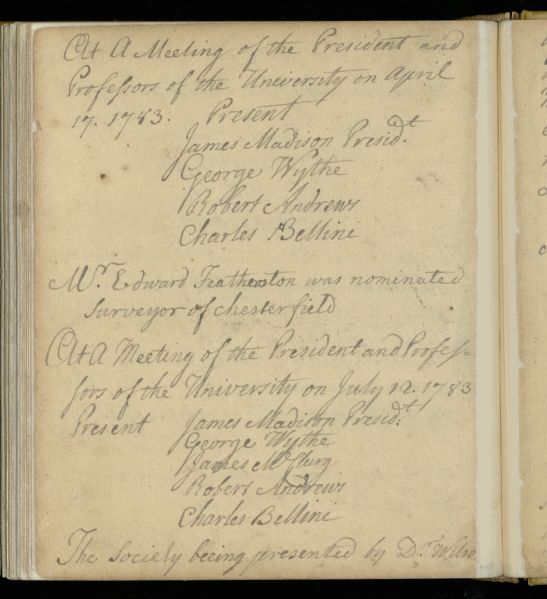 At A Meeting of the President and
Professors of the University on April
17. 1783. Present
James Madison Presidt.
George Wythe
Robert Andrews
Charles Bellini
Mr. Edward Featherston was nominated
Surveyor of Chesterfield
At A Meeting of the President and Profes-
sors of the University on July 12. 1783
Present James Madison Presidt.
George Wythe
James McClurg
Robert Andrews
Charles Bellini
The Society beeing presented by Dr. Wilso